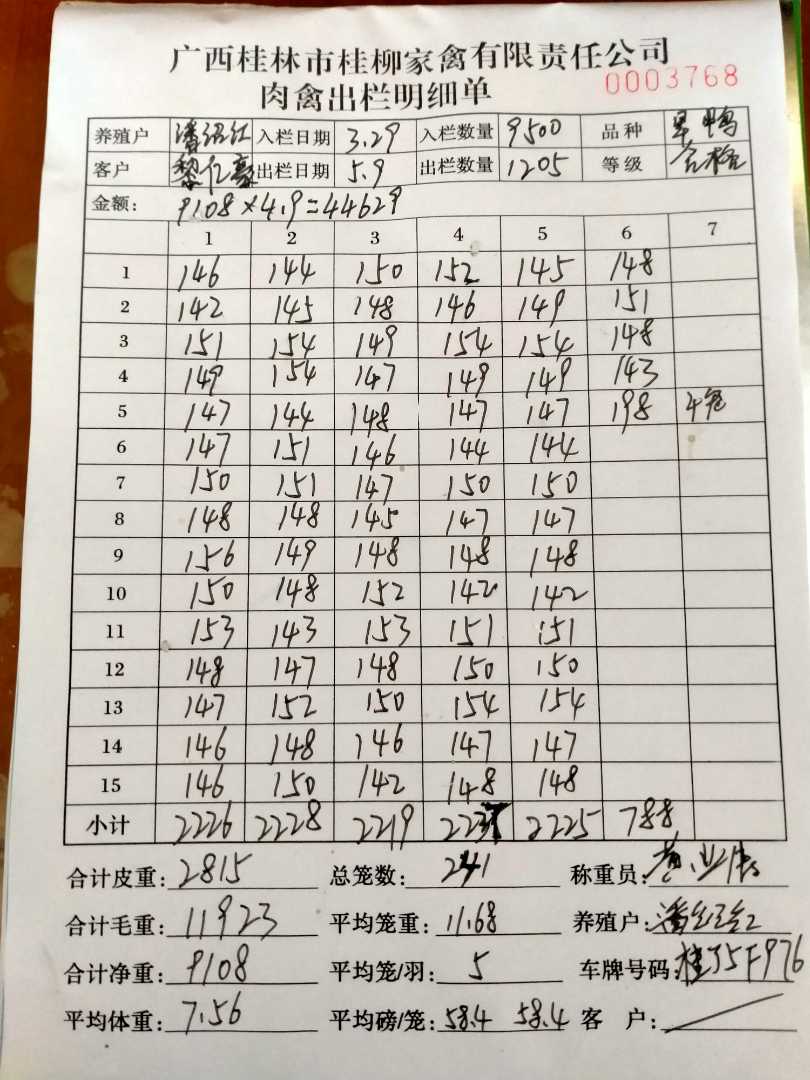 广西桂林市桂柳家禽有限责任公司
0003768
肉禽出栏明细单
养殖户 潘绍红 入栏日期 3.29 入栏数量 9500 品种 旱鸭
客户 黎仁豪 出栏日期 5.9 出栏数量 1205 等级 合格
金额: 9108×4.9=44629
1 2 3 4 5 6 7
1 146 144 150 152 145 148
2 142 145 148 146 149 151
3 151 154 149 154 154 148
4 149 154 147 149 149 143
5 147 144 148 147 147 198 4笼
6 147 151 146 144 144
7 150 151 147 150 150
8 148 148 145 147 147
9 156 149 148 148 148
10 150 148 152 142 142
11 153 143 153 151 151
12 148 147 148 150 150
13 147 152 150 154 154
14 146 148 146 147 147
15 146 150 142 148 148
小计 2226 2228 2219 2225 788
合计皮重: 2815 总笼数: 241 称重员: 黄业
合计毛重: 11923 平均笼重: 11.68 养殖户: 潘绍红
合计净重: 9108 平均笼/羽: 5 车牌号码: 桂J5F976
平均体重: 7.56 平均磅/笼: 58.4 58.4 客 户: